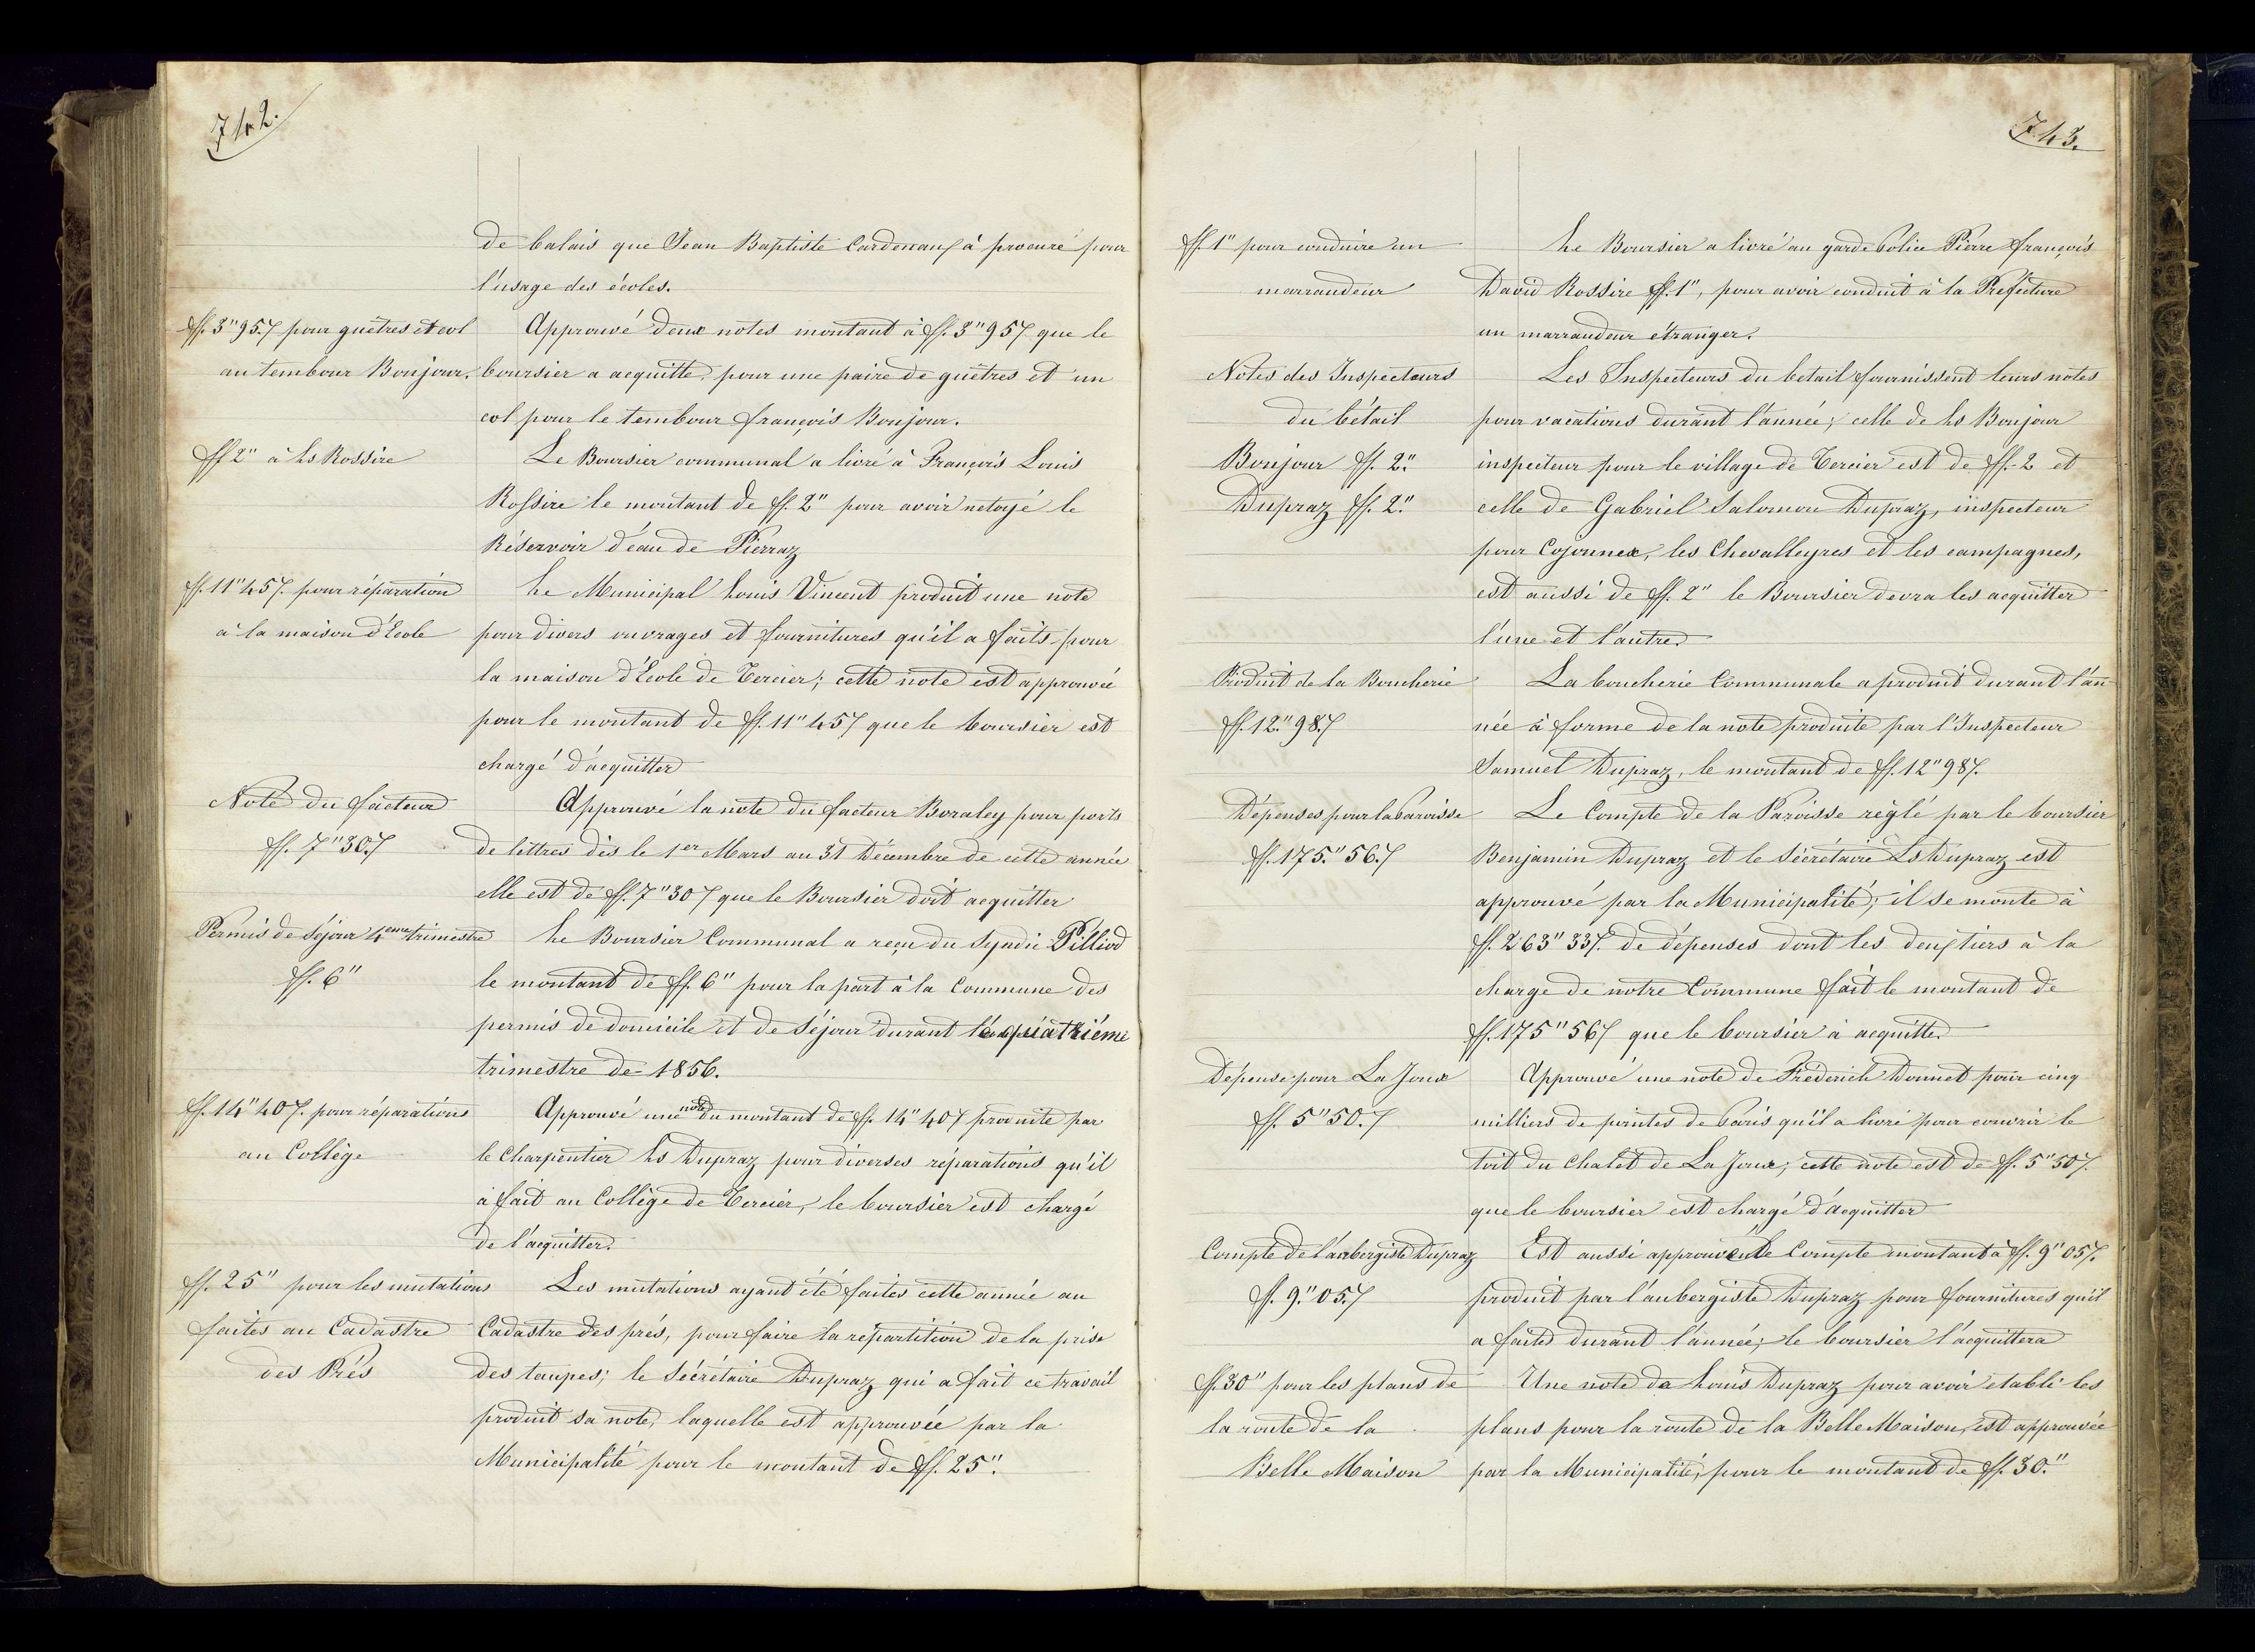 742.
de balais que Jean Baptiste Cardenaux à procuré pour
l'usage des écoles.
ff. 3"95.7 pour guêtres et col
au tembour Bonjour.
Approuvé deux notes montant à ff. 3"957 que le
boursier a acquitté, pour une paire de guêtres et un
col pour le tembour françois Bonjour.
ff 2" à Ls Rossire
Le Boursier communal a livré à François Louis
Rossire le montant de ff. 2" pour avoir netoyé le
Réservoir d'eau de Pierraz
ff. 11"457. pour réparation
à la maison d'Ecole
Le Municipal Louis Vincent produit une note
pour divers ouvrages et fournitures qu'il a faits pour
la maison d'Ecole de Tercier; cette note est approuvée
pour le montant de ff. 11"457 que le boursier est
chargé d'acquitter
Note du facteur
ff. 7"30.7
Approuvé la note du facteur Boraley pour ports
de lettres dès le 1er Mars au 31 Décembre de cette année
elle est de ff. 7"307 que le Boursier doit acquitter
Permis de Séjour 4eme trimestre
ff. 6"
Le Boursier Communal a reçu du Syndic Pilliod
le montant de ff. 6" pour la part à la Commune des
permis de domicile et de Séjour durant le quatrième
trimestre de 1856.
ff. 14"407. pour réparations
au Collège
Approuvé une note du montant de ff. 14"407 produite par
le Charpentier Ls Dupraz pour diverses réparations qu'il
à fait au Collège de Tercier, le boursier est chargé
de l'acquitter.
ff. 25" pour les mutations
faites au Cadastre
des Prés
Les mutations ayant été faites cette année au
Cadastre des prés, pour faire la répartition de la prise
des taupes; le Sécrétaire Dupraz qui a fait ce travail
produit sa note, laquelle est approuvée par la
Municipalité pour le montant de ff. 25".
743.
ff. 1" pour conduire un
marraudeur
Le Boursier a livré au garde Police Pierre françois
David Rossire ff. 1", pour avoir conduit à la Préfecture
un marraudeur étranger.
Notes des Inspecteurs
du bétail
Bonjour ff. 2".
Dupraz ff. 2".
Les Inspecteurs du betail fournissent leurs notes
pour vacations durant l'année; celle de Ls Bonjour
inspecteur pour le village de Tercier est de ff. 2 et
celle de Gabriel Salomon Dupraz, inspecteur
pour Cojonnex, les Chevalleyres et les campagnes,
est aussi de ff. 2" le Boursier devra les acquitter
l'une et l'autre.
Produit de la Boucherie
ff. 12."98.7
La boucherie Communale a produit durant l'an
née à forme de la note produite par l'Inspecteur
Samuel Dupraz, le montant de ff. 12"987.
Dépenses pour la Paroisse
ff. 175."56.7
Le Compte de la Paroisse règlé par le boursier
Benjamin Dupraz et le Sécrétaire Ls Dupraz est
approuvé par la Municipalité; il se monte à
ff. 263"337. de dépenses dont les deux tiers à la
charge de notre Commune fait le montant de
ff. 175"567 que le boursier à acquitté.
Dépense pour La Joux
ff. 5"50.7
Approuvé une note de Fréderich Donnet pour cinq
milliers de pointes de Paris qu'il a livré pour couvrir le
toit du Chalet de La Joux; cette note est de ff. 5"507.
que le boursier est chargé d'acquitter
Compte de l'aubergiste Dupraz
ff. 9."05.7
Est aussi approuvé le Compte montant à ff. 9"057.
produit par l'aubergiste Dupraz pour fournitures qu'il
a faites durant l'année; le boursier l'acquittera
ff. 30" pour les plans de
la route de la
Belle Maison
Une note de Louis Dupraz pour avoir etabli les
plans pour la route de la Belle Maison, est approuvée
par la Municipalité, pour le montant de ff. 30."